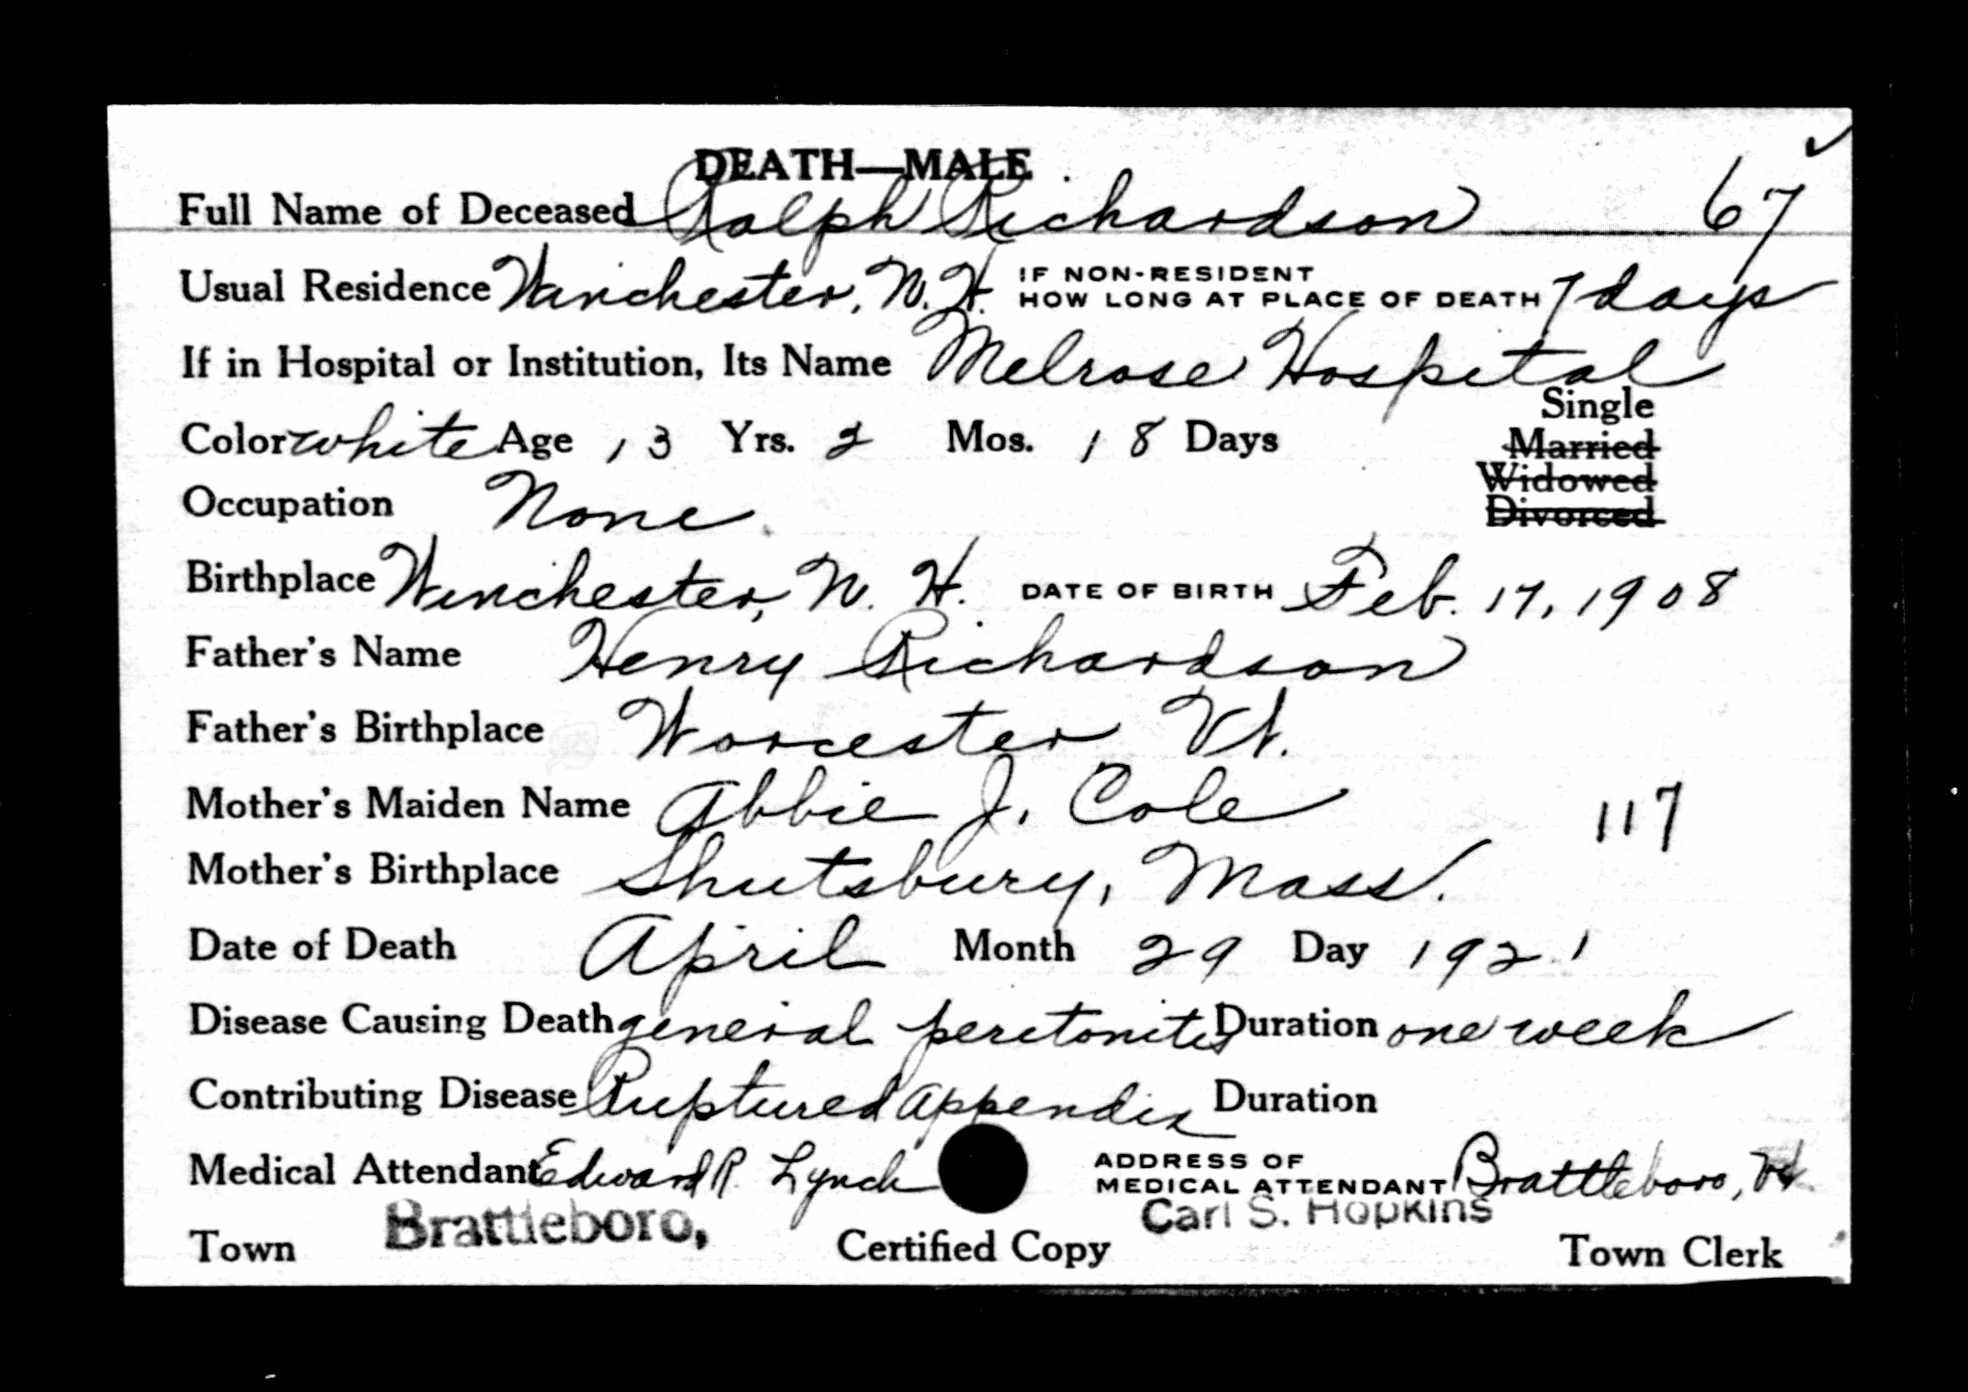 DEATH—MALE
Full Name of Deceased Ralph Richardson 67
Usual Residence Winchester, N. H. IF NON-RESIDENT HOW LONG AT PLACE OF DEATH 7 days
If in Hospital or Institution, Its Name Melrose Hospital
Color white Age 13 Yrs. 2 Mos. 18 Days Single
Married
Widowed
Divorced
Occupation None
Birthplace Winchester, N. H. DATE OF BIRTH Feb. 17, 1908
Father's Name Henry Richardson
Father's Birthplace Worcester Vt.
Mother's Maiden Name Abbie J. Cole 117
Mother's Birthplace Shutsbury, Mass.
Date of Death April Month 29 Day 1921
Disease Causing Death general peritonitis Duration one week
Contributing Disease Ruptured appendix Duration
Medical Attendant Edward R. Lynch ADDRESS OF MEDICAL ATTENDANT Brattleboro, Vt.
Town Brattleboro, Certified Copy Carl S. Hopkins Town Clerk